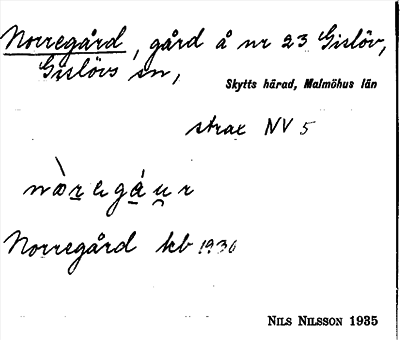 Norregård, gård å nr 23 Gislöv,
Gislövs sn,
Skytts härad, Malmöhus län
strax NV 5
Norregård kb 1936
NILS NILSSON 1935